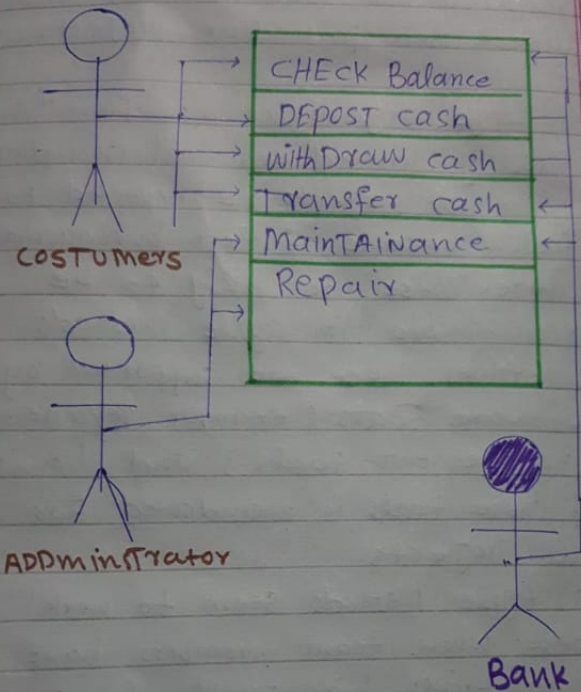 CHECK Balance
DEPOST cash
withDraw cash
Transfer cash
MainTAiNance
Repair
COSTUmers
ADDminsTrator
Bank